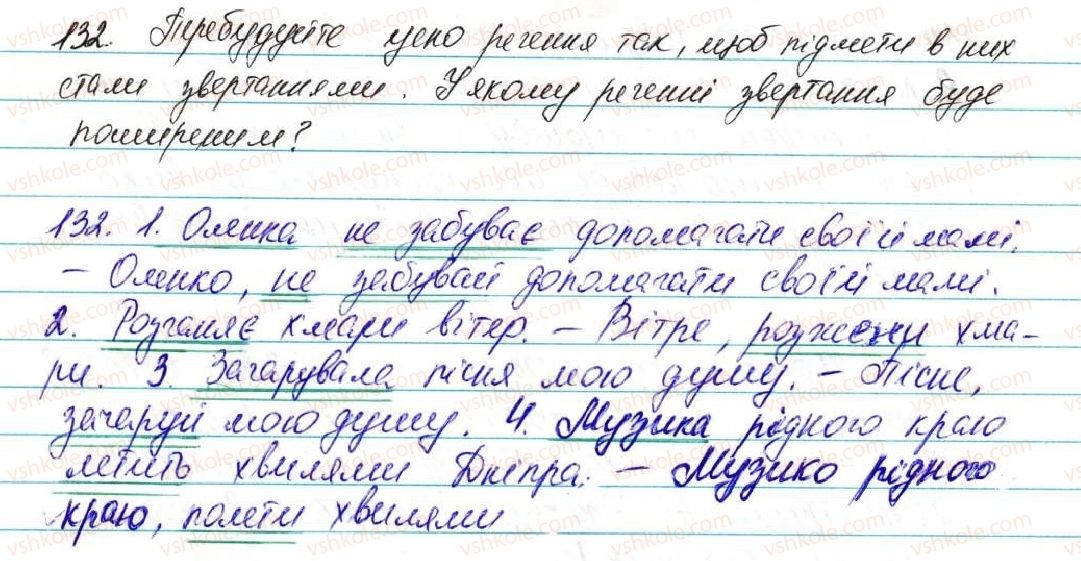 132. Перебудуйте усно речення так, щоб підмети в них
стали звертаннями. У якому реченні звертання буде
поширеним?
132. 1. Оленка не забуває допомагати своїй мамі.
– Оленко, не забувай допомагати своїй мамі.
2. Розганяє хмари вітер. – Вітре, розжени хма-
ри. 3. Зачарувала пісня мою душу. – Пісне,
зачаруй мою душу. 4. Музика рідного краю
летить хвилями Дніпра. – Музико рідного
краю, полети хвилями